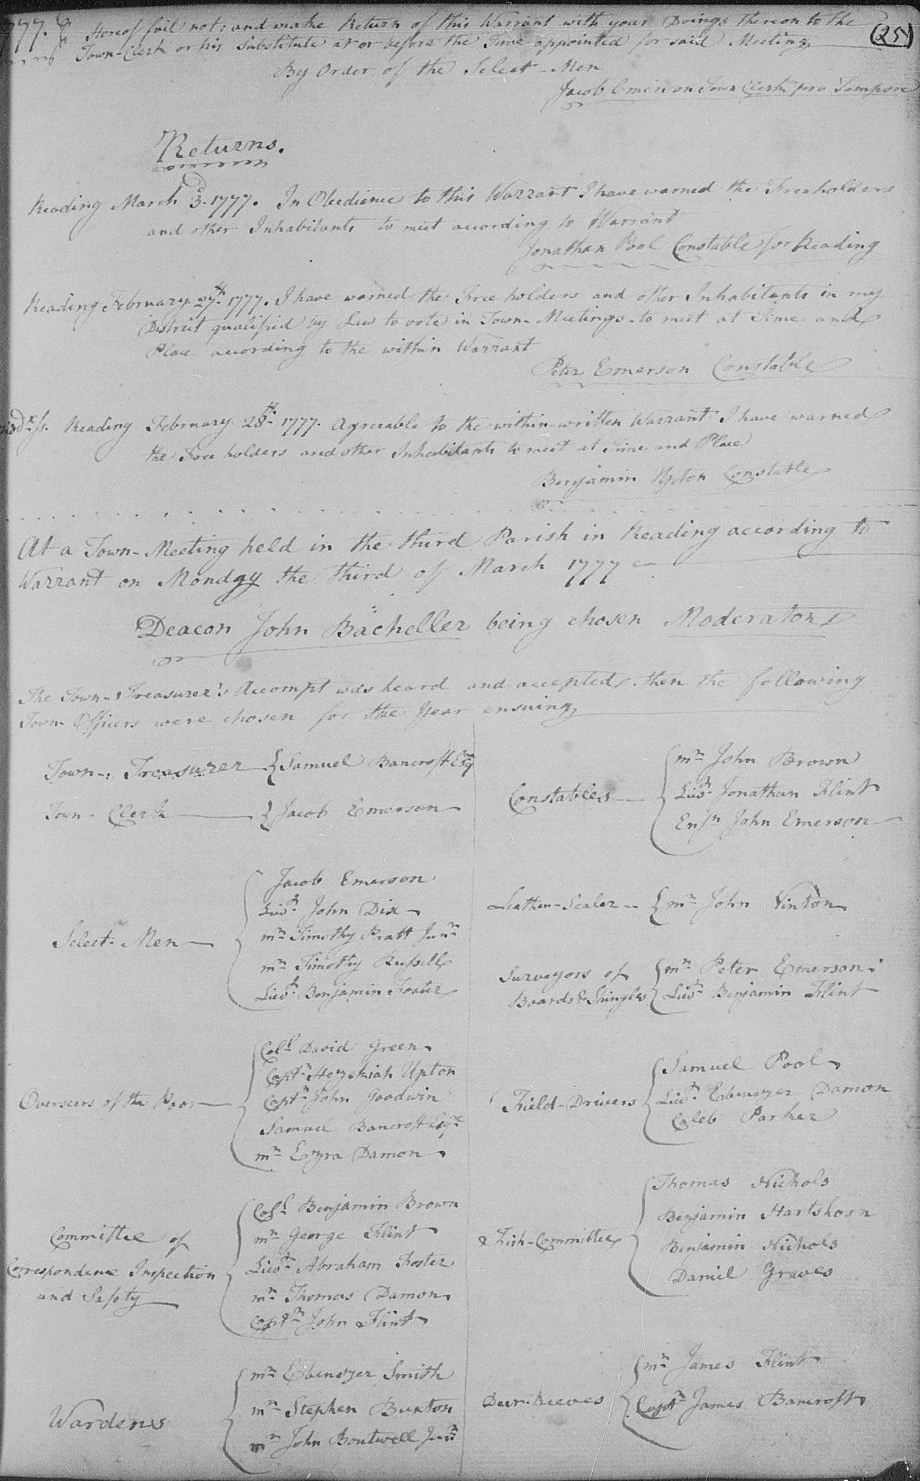 777. (25)
Hereof fail not; and make Return of this Warrant with your Doings thereon to the
Town-Clerk or his Substitute at or before the Time appointed for said Meeting
By Order of the Select-Men
Jacob Emerson Town Clerk pro Tempore
Returns.
Reading March 3d. 1777. In Obedience to this Warrant I have warned the Freeholders
and other Inhabitants to meet according to Warrant
Jonathan Pool Constable for Reading
Reading February 27th 1777. I have warned the Free holders and other Inhabitants in my
District qualified by Law to vote in Town-Meetings to meet at Time and
Place according to the within Warrant
Peter Emerson Constable
Reading February 28th 1777. Agreeable to the within-written Warrant I have warned
the Free holders and other Inhabitants to meet at Time and Place
Benjamin Upton Constable
At a Town-Meeting held in the third Parish in Reading according to
Warrant on Monday the third of March 1777
Deacon John Bacheller being chosen Moderator
The Town-Treasurer's Accompt was heard and accepted, then the following
Town-Officers were chosen for the Year ensuing
Town-Treasurer { Samuel Bancroft Esqr
Town-Clerk { Jacob Emerson
Select-Men
Jacob Emerson
Lieut. John Dix
mr Timothy Pratt Junr
mr Timothy Russell
Lieut. Benjamin Foster
Overseers of the Poor
Coll. David Green
Capt. Hezekiah Upton
Captn John Goodwin
Samuel Bancroft Esqr.
mr Ezra Damon
Committee of
Correspondence Inspection
and Safety
Coll. Benjamin Brown
mr George Flint
Lieut. Abraham Foster
mr Thomas Damon
Captn John Flint
Wardens
mr Ebenezer Smith
mr Stephen Buxton
mr John Boutwell Junr
Constables
mr John Brown
Lieut. Jonathan Flint
Ensn John Emerson
Leather-Sealer { mr John Vinton
Surveyors of
Boards & Shingles
mr Peter Emerson
Lieut. Benjamin Flint
Field-Drivers
Samuel Pool
Lieut. Ebenezer Damon
Caleb Parker
Fish-Committee
Thomas Nichols
Benjamin Hartshorn
Benjamin Nichols
Daniel Graves
Deer-Reeves
mr James Flint
Captn James Bancroft